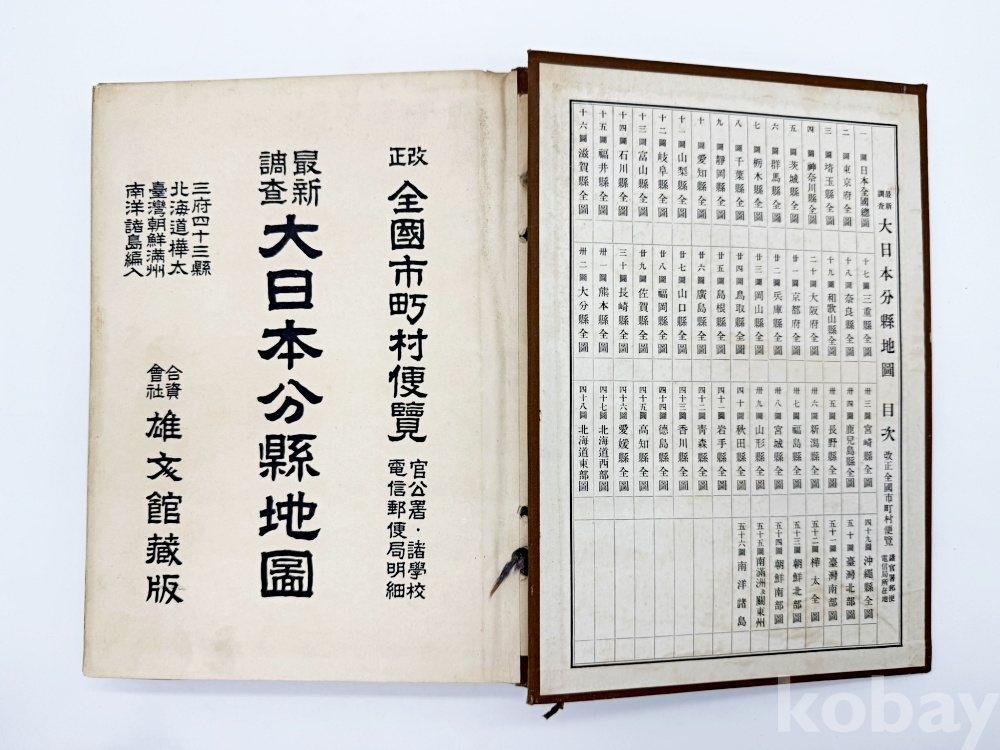 最新調査 大日本分縣地圖 目次 改正全國市町村便覽 諸官署郵便電信局所在地
一圖 日本全國總圖
二圖 東京府全圖
三圖 埼玉縣全圖
四圖 神奈川縣全圖
五圖 茨城縣全圖
六圖 群馬縣全圖
七圖 栃木縣全圖
八圖 千葉縣全圖
九圖 靜岡縣全圖
十圖 愛知縣全圖
十一圖 山梨縣全圖
十二圖 岐阜縣全圖
十三圖 富山縣全圖
十四圖 石川縣全圖
十五圖 福井縣全圖
十六圖 滋賀縣全圖
十七圖 三重縣全圖
十八圖 奈良縣全圖
十九圖 和歌山縣全圖
二十圖 大阪府全圖
廿一圖 京都府全圖
廿二圖 兵庫縣全圖
廿三圖 岡山縣全圖
廿四圖 鳥取縣全圖
廿五圖 島根縣全圖
廿六圖 廣島縣全圖
廿七圖 山口縣全圖
廿八圖 福岡縣全圖
廿九圖 佐賀縣全圖
三十圖 長崎縣全圖
卅一圖 熊本縣全圖
卅二圖 大分縣全圖
卅三圖 宮崎縣全圖
卅四圖 鹿兒島縣全圖
卅五圖 長野縣全圖
卅六圖 新潟縣全圖
卅七圖 福島縣全圖
卅八圖 宮城縣全圖
卅九圖 山形縣全圖
四十圖 秋田縣全圖
四十一圖 岩手縣全圖
四十二圖 青森縣全圖
四十三圖 香川縣全圖
四十四圖 德島縣全圖
四十五圖 高知縣全圖
四十六圖 愛媛縣全圖
四十七圖 北海道西部圖
四十八圖 北海道東部圖
四十九圖 沖繩縣全圖
五十圖 臺灣北部圖
五十一圖 臺灣南部圖
五十二圖 樺太全圖
五十三圖 朝鮮北部圖
五十四圖 朝鮮南部圖
五十五圖 南滿洲及關東州
五十六圖 南洋諸島
改正 全國市町村便覽
官公署・諸學校
電信郵便局明細
最新調查 大日本分縣地圖
三府四十三縣
北海道樺太
臺灣朝鮮滿州
南洋諸島編入
合資會社 雄文館藏版
kobay